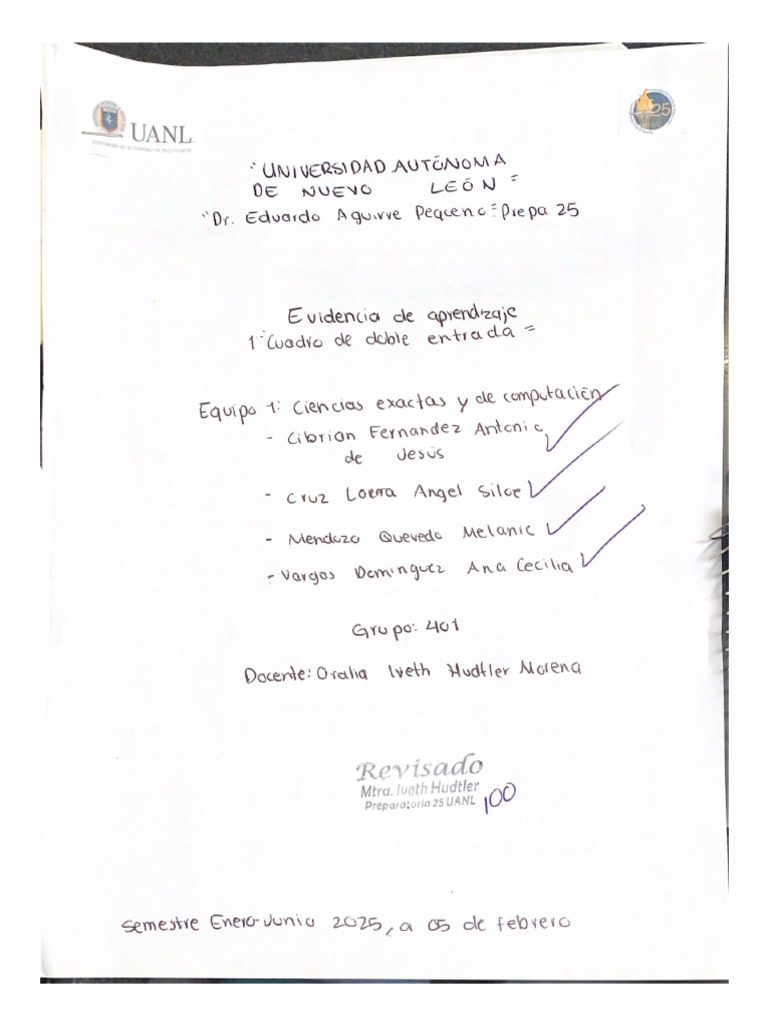 UANL
UNIVERSIDAD AUTÓNOMA DE NUEVO LEÓN
25
"UNIVERSIDAD AUTÓNOMA
DE NUEVO LEÓN"
"Dr. Eduardo Aguirre Pequeño" Prepa 25
Evidencia de aprendizaje
1 "Cuadro de doble entrada"
Equipo 1: Ciencias exactas y de computación
- Cibrian Fernandez Antonio
de Jesús
- Cruz Loera Angel Siloe
- Mendoza Quevedo Melanie
- Vargas Dominguez Ana Cecilia
Grupo: 401
Docente: Oralia Iveth Hudtler Morena
Revisado
Mtra. Iveth Hudtler
Preparatoria 25 UANL
100
Semestre Enero-Junio 2025, a 05 de febrero